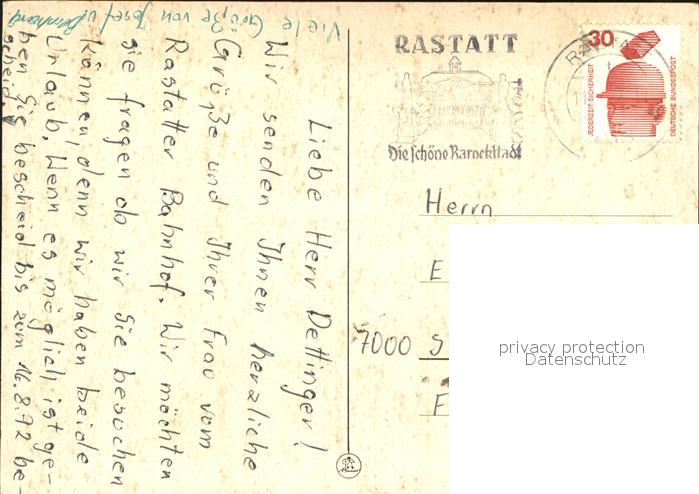 Liebe Herr Dettinger!
Wir senden Ihnen herzliche
Grüße und Ihrer Frau vom
Rastatter Bahnhof. Wir möchten
sie fragen ob wir Sie besuchen
können, denn wir haben beide
Urlaub. Wenn es möglich ist ge-
ben Sie bescheid bis zum 16.8.72 be-
scheid.
Viele Grüße von Josef und
Bernhard
RASTATT
Die schöne Barockstadt
30
JEDERZEIT SICHERHEIT
DEUTSCHE BUNDESPOST
Herrn
E
7000 S
F
privacy protection
Datenschutz